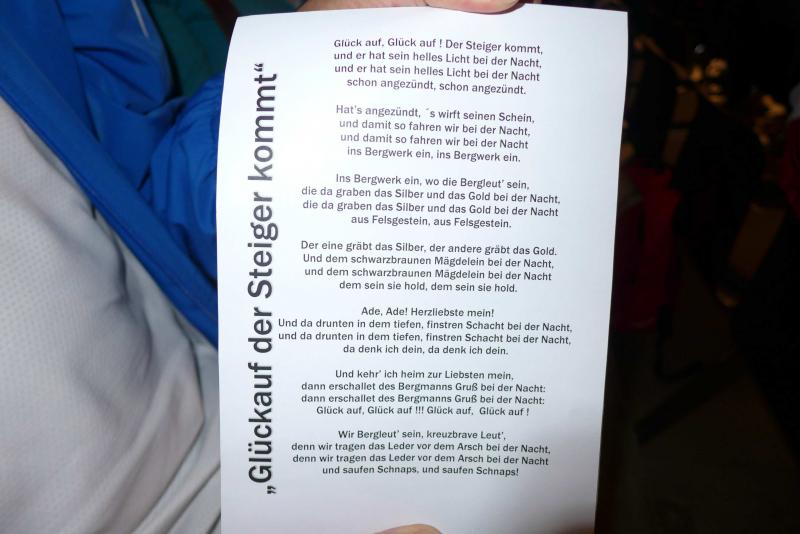 „Glückauf der Steiger kommt“
Glück auf, Glück auf ! Der Steiger kommt,
und er hat sein helles Licht bei der Nacht,
und er hat sein helles Licht bei der Nacht
schon angezündt, schon angezündt.
Hat's angezündt, ´s wirft seinen Schein,
und damit so fahren wir bei der Nacht,
und damit so fahren wir bei der Nacht
ins Bergwerk ein, ins Bergwerk ein.
Ins Bergwerk ein, wo die Bergleut' sein,
die da graben das Silber und das Gold bei der Nacht,
die da graben das Silber und das Gold bei der Nacht
aus Felsgestein, aus Felsgestein.
Der eine gräbt das Silber, der andere gräbt das Gold.
Und dem schwarzbraunen Mägdelein bei der Nacht,
und dem schwarzbraunen Mägdelein bei der Nacht
dem sein sie hold, dem sein sie hold.
Ade, Ade! Herzliebste mein!
Und da drunten in dem tiefen, finstren Schacht bei der Nacht,
und da drunten in dem tiefen, finstren Schacht bei der Nacht,
da denk ich dein, da denk ich dein.
Und kehr' ich heim zur Liebsten mein,
dann erschallet des Bergmanns Gruß bei der Nacht:
dann erschallet des Bergmanns Gruß bei der Nacht:
Glück auf, Glück auf !!! Glück auf, Glück auf !
Wir Bergleut' sein, kreuzbrave Leut',
denn wir tragen das Leder vor dem Arsch bei der Nacht,
denn wir tragen das Leder vor dem Arsch bei der Nacht
und saufen Schnaps, und saufen Schnaps!